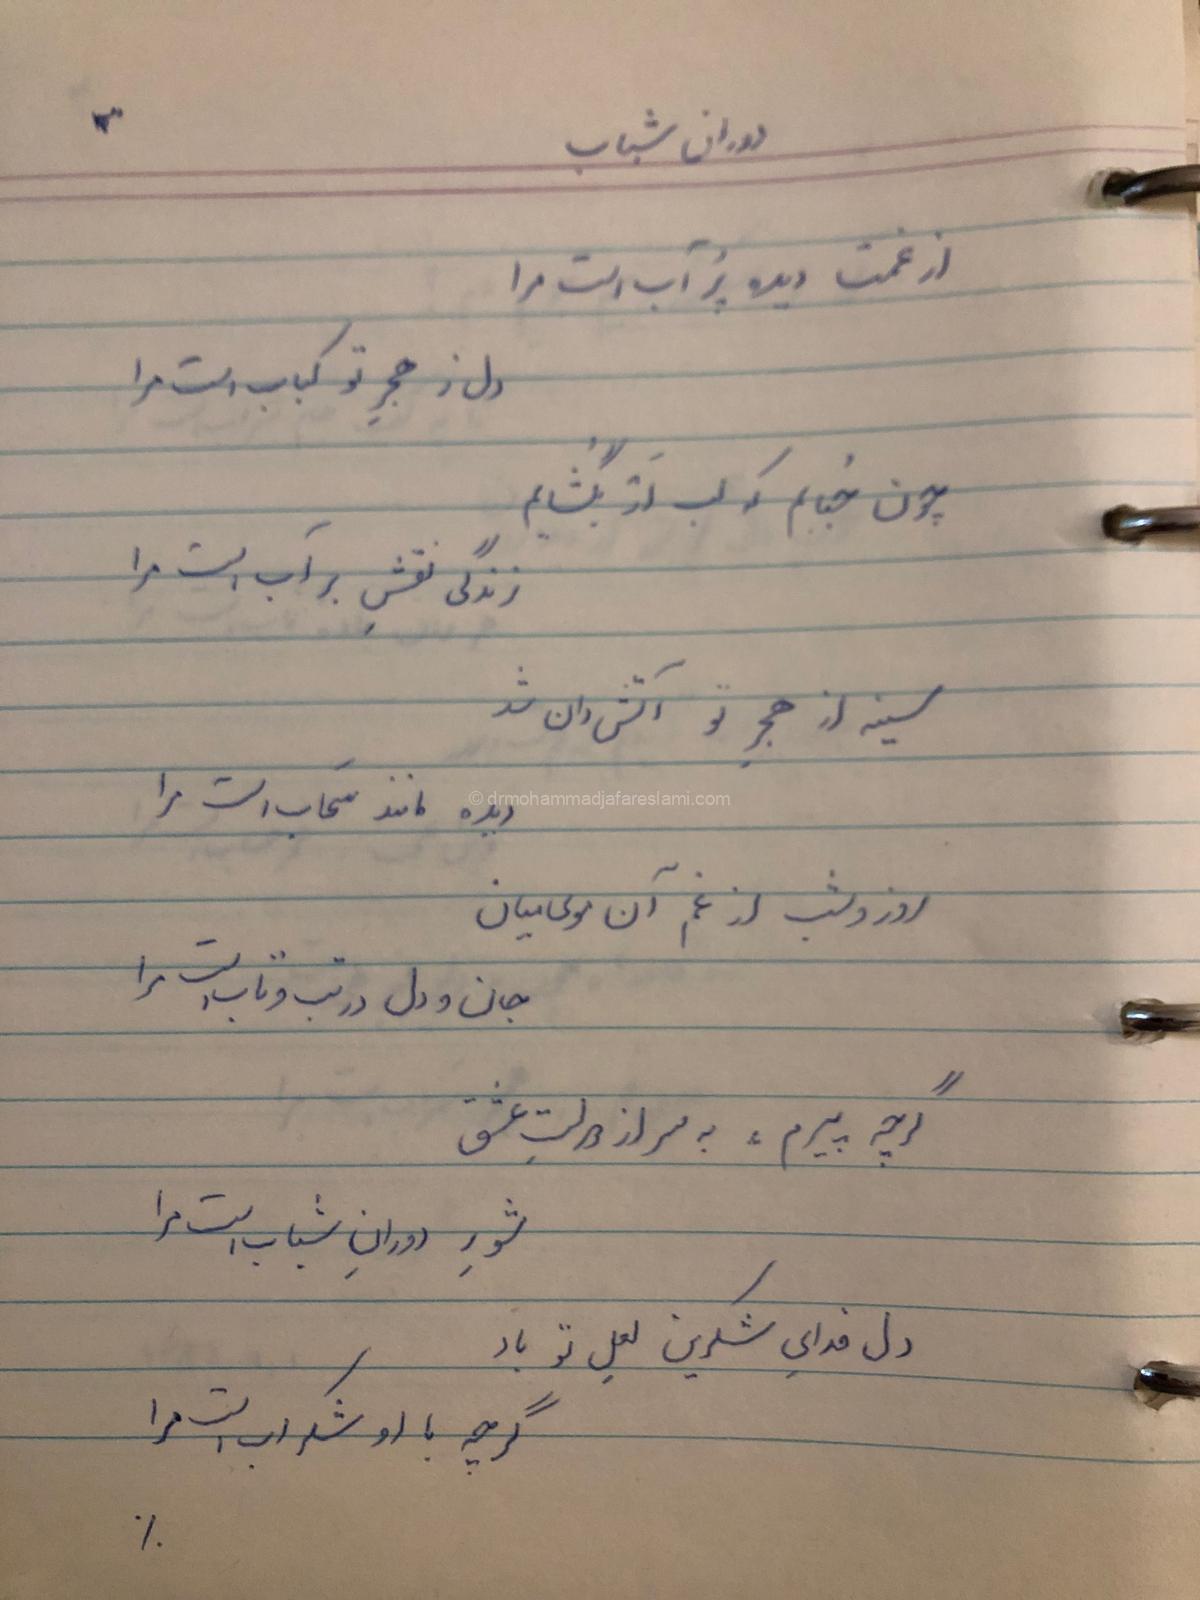 دوران شباب
از غمت دیده پُر آب است مرا
دل ز هجرِ تو کباب است مرا
چون حُبابم که لب ار بگُشایم
زندگی نقشِ بر آب است مرا
سینه از هجرِ تو آتش دان شد
دیده مانند سَحاب است مرا
© drmohammadjafareslami.com
روز و شب از غم آن موی میان
جان و دل در تب و تاب است مرا
گرچه پیرم، به سر از دولتِ عشق
شورِ دورانِ شباب است مرا
دل فدایِ شکرین لعلِ تو باد
گرچه با او شکر آب است مرا